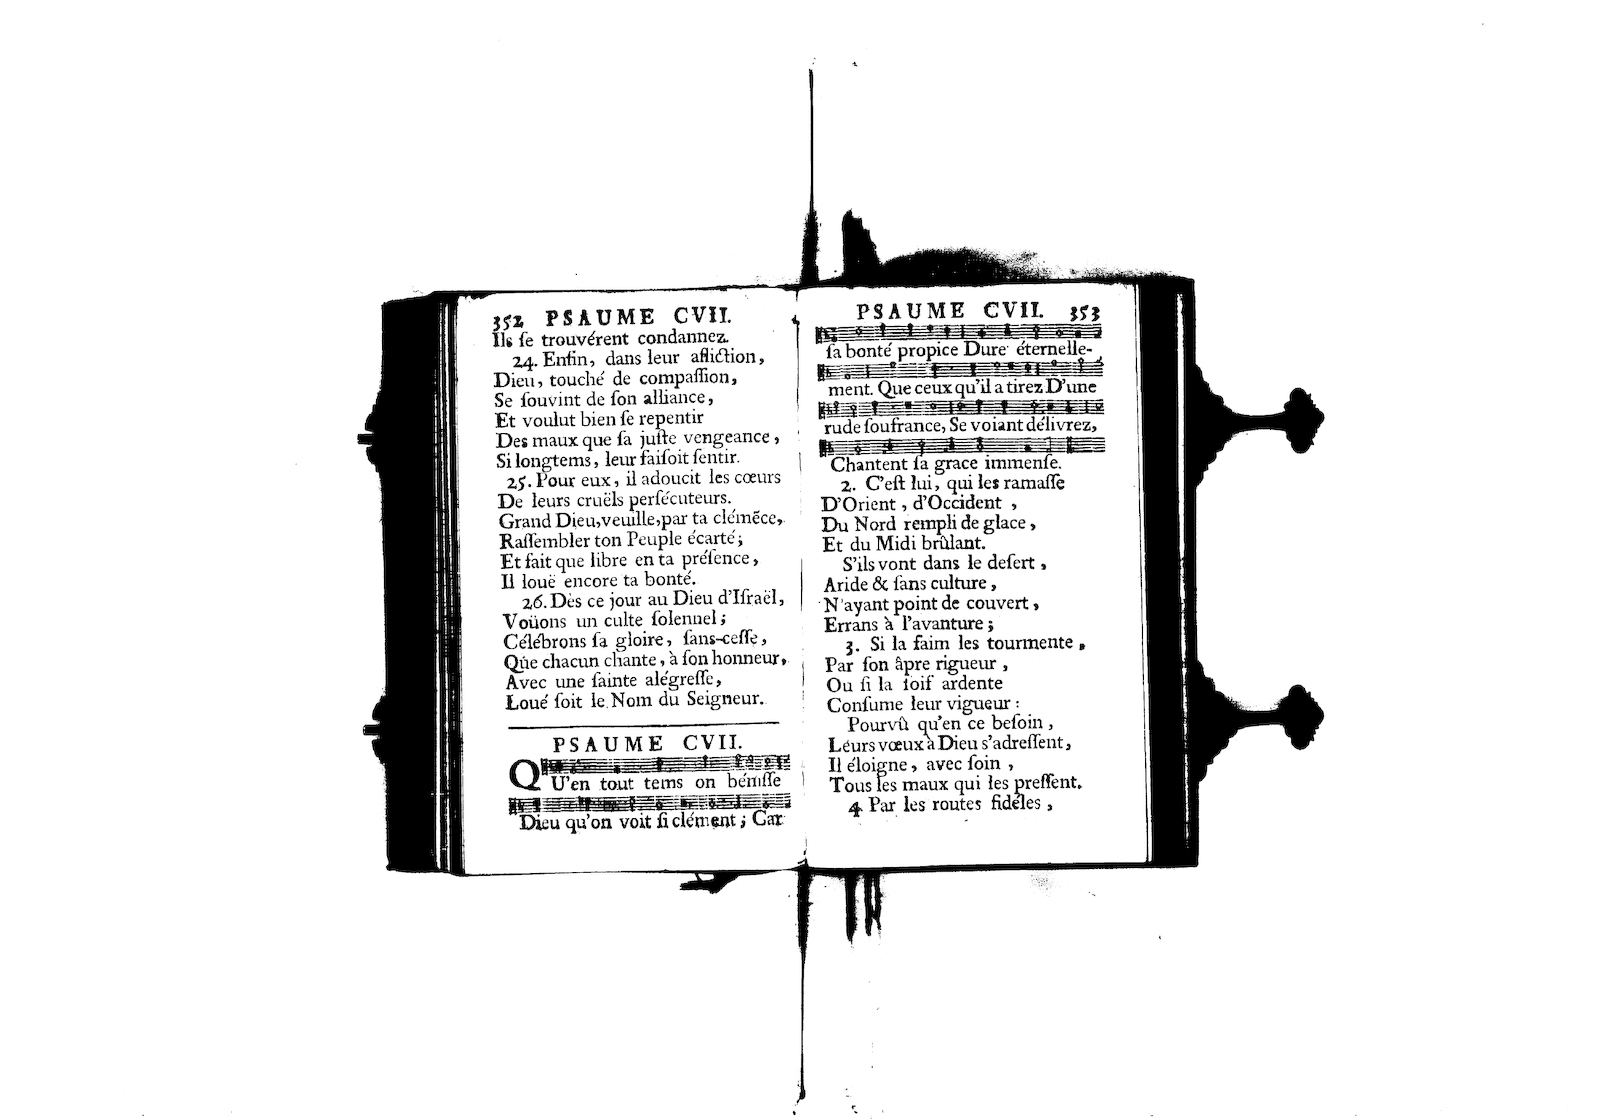 352 PSAUME CVII.
Ils ſe trouvérent condannez.
24. Enfin, dans leur afliction,
Dieu, touché de compaſſion,
Se ſouvint de ſon alliance,
Et voulut bien ſe repentir
Des maux que ſa juſte vengeance,
Si longtems, leur faiſoit ſentir.
25. Pour eux, il adoucit les cœurs
De leurs cruëls perſécuteurs.
Grand Dieu, veuille, par ta clémẽce,
Raſſembler ton Peuple écarté;
Et fait que libre en ta préſence,
Il louë encore ta bonté.
26. Dès ce jour au Dieu d'Iſraël,
Voüons un culte ſolennel;
Célébrons ſa gloire, ſans-ceſſe,
Que chacun chante, à ſon honneur,
Avec une ſainte alégreſſe,
Loué ſoit le Nom du Seigneur.
PSAUME CVII.
QU'en tout tems on béniſſe
Dieu qu'on voit ſi clément; Car
PSAUME CVII. 353
ſa bonté propice Dure éternelle-
ment. Que ceux qu'il a tirez D'une
rude ſoufrance, Se voiant délivrez,
Chantent ſa grace immenſe.
2. C'eſt lui, qui les ramaſſe
D'Orient, d'Occident,
Du Nord rempli de glace,
Et du Midi brûlant.
S'ils vont dans le deſert,
Aride & ſans culture,
N'ayant point de couvert,
Errans à l'avanture;
3. Si la faim les tourmente,
Par ſon âpre rigueur,
Ou ſi la ſoif ardente
Conſume leur vigueur:
Pourvû qu'en ce beſoin,
Leurs vœux à Dieu s'adreſſent,
Il éloigne, avec ſoin,
Tous les maux qui les preſſent.
4 Par les routes fidéles,